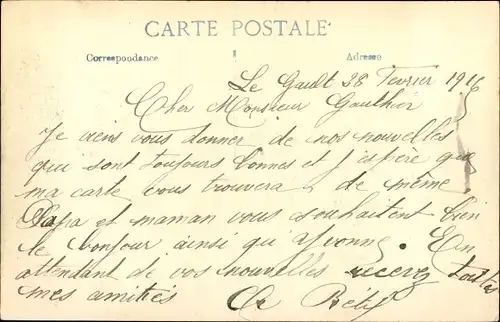 CARTE POSTALE
Correspondance Adresse
Le Gault 28 Fevrier 1916
Cher Monsieur Gauthier
Je viens vous donner de nos nouvelles
qui sont toujours bonnes et j'espère que
ma carte vous trouvera de même.
Papa et maman vous souhaitent bien
le bonjour ainsi qu'Yvonne. En
attendant de vos nouvelles recevez toutes
mes amitiés